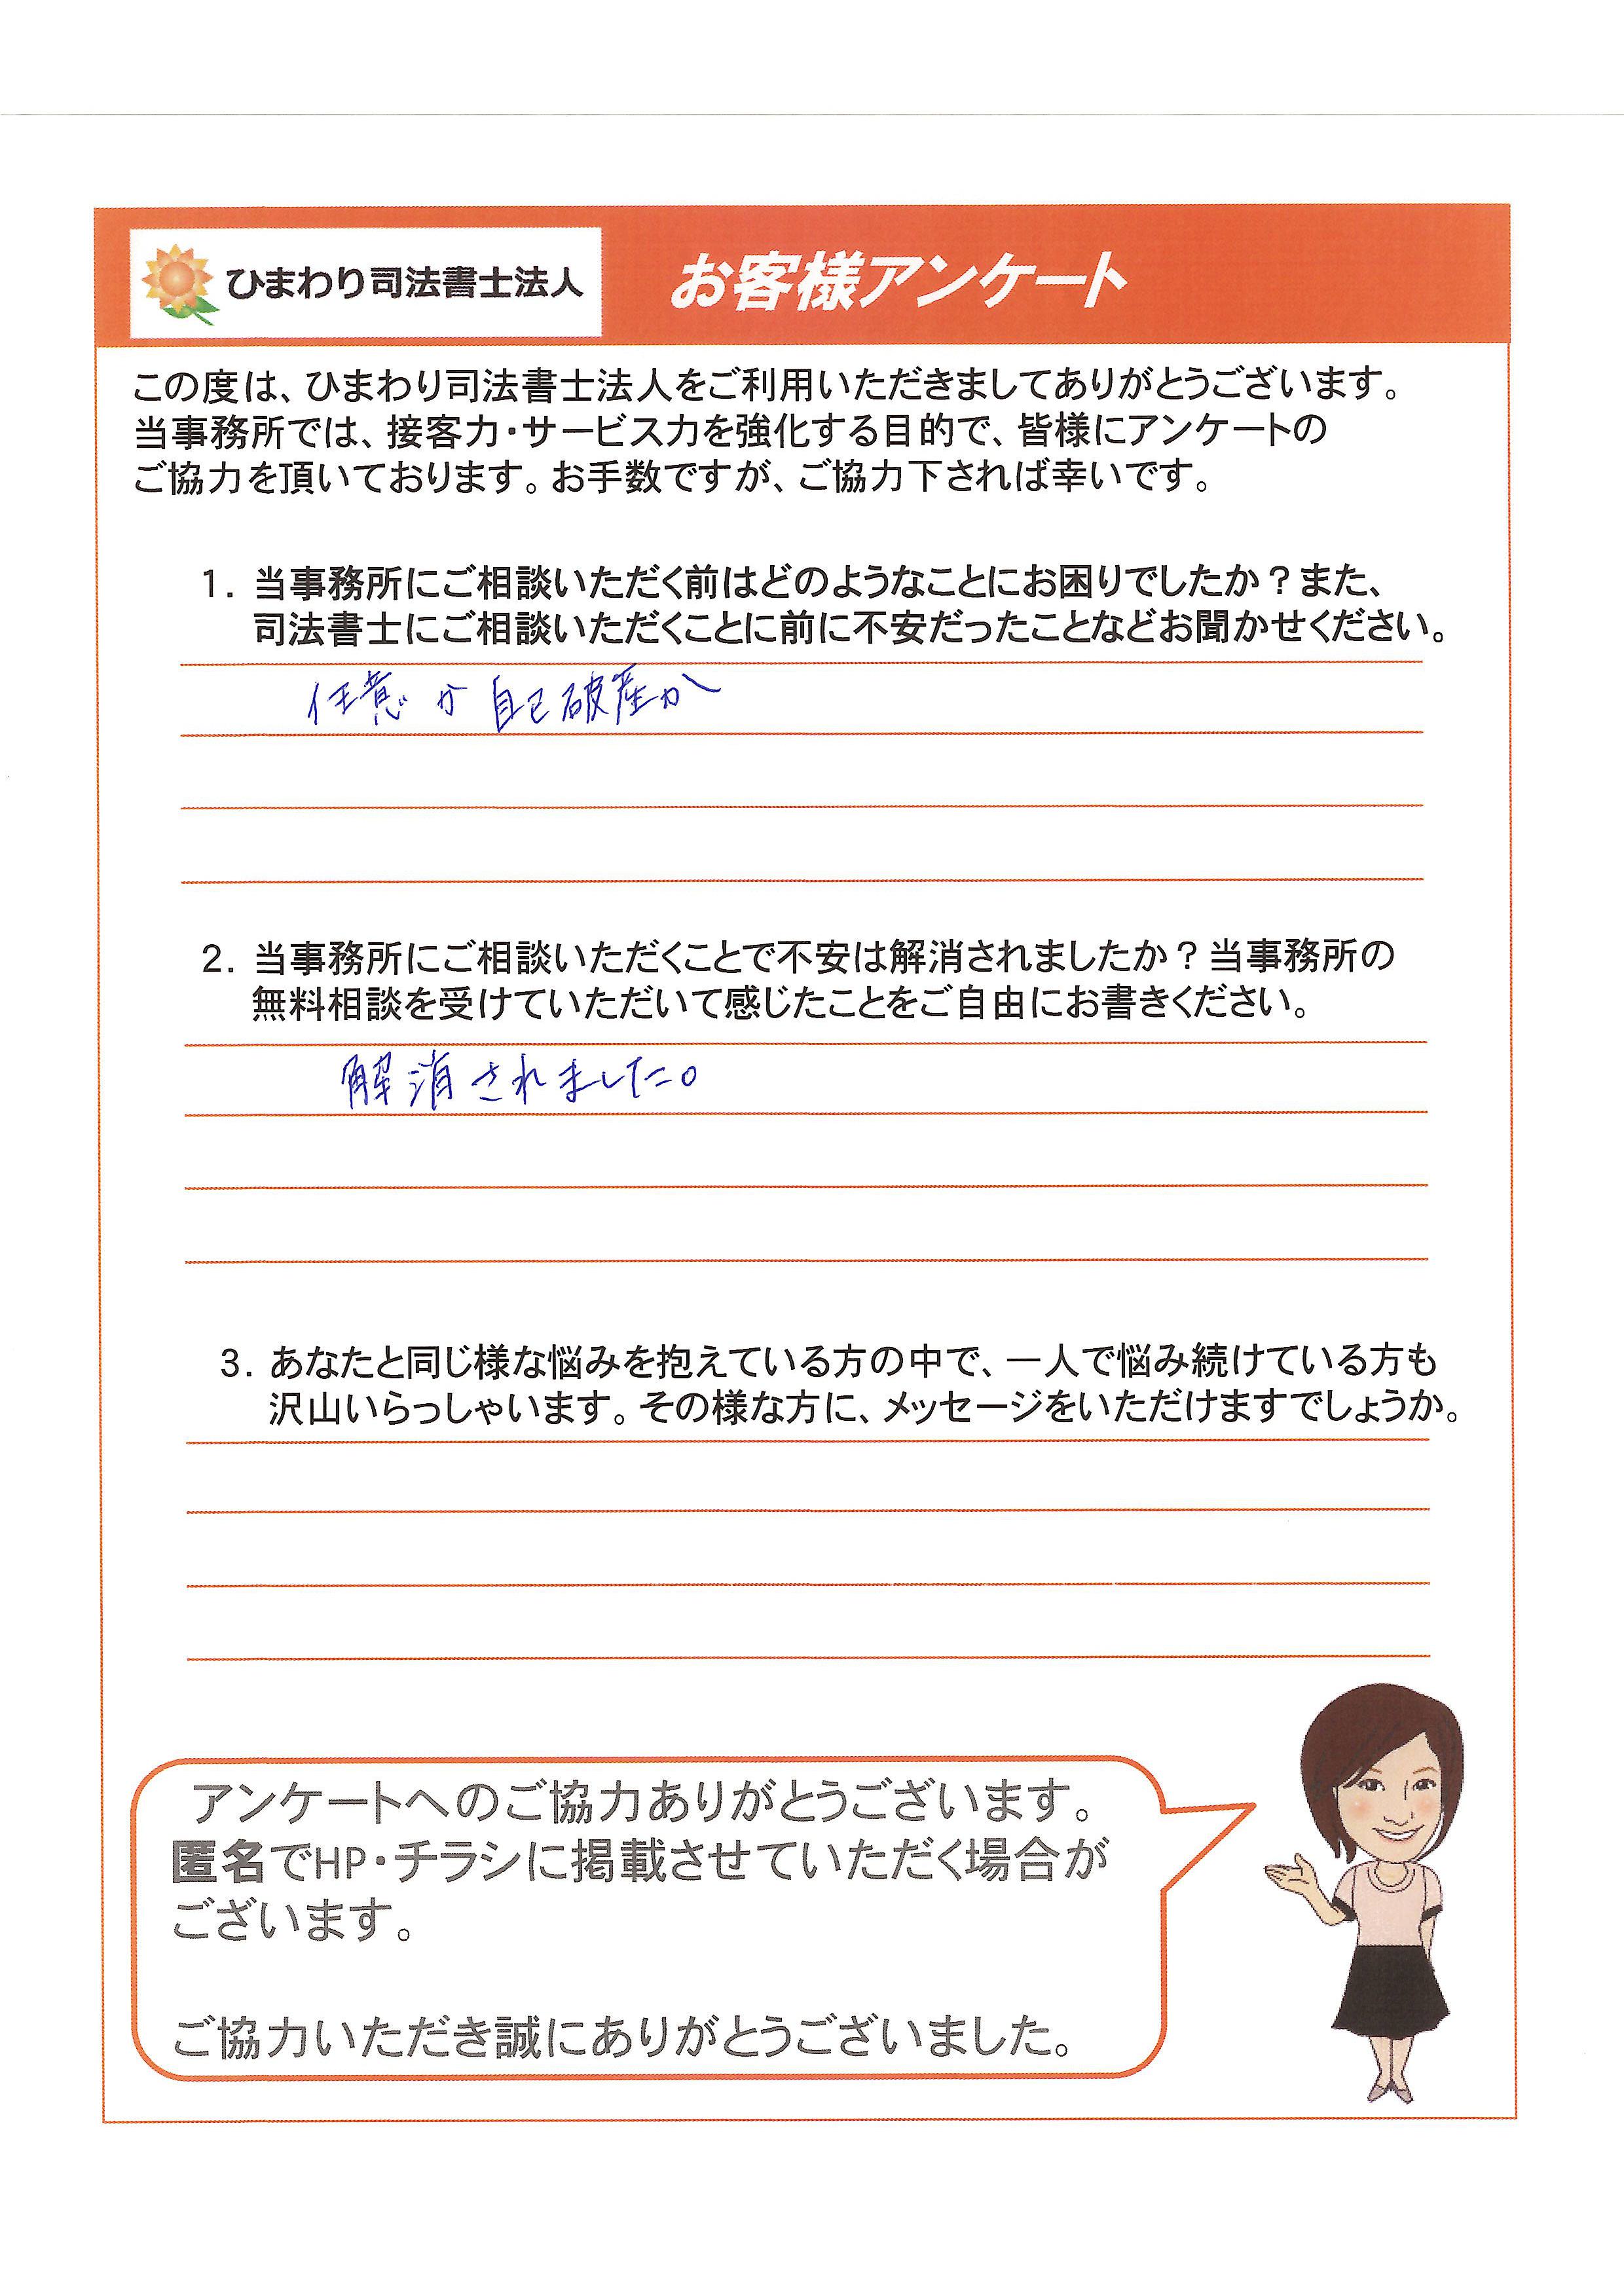 ひまわり司法書士法人
お客様アンケート
この度は、ひまわり司法書士法人をご利用いただきましてありがとうございます。
当事務所では、接客力・サービス力を強化する目的で、皆様にアンケートの
ご協力を頂いております。お手数ですが、ご協力下されば幸いです。
1. 当事務所にご相談いただく前はどのようなことにお困りでしたか？また、
司法書士にご相談いただくことに前に不安だったことなどお聞かせください。
任意か自己破産か
2. 当事務所にご相談いただくことで不安は解消されましたか？当事務所の
無料相談を受けていただいて感じたことをご自由にお書きください。
解消されました。
3. あなたと同じ様な悩みを抱えている方の中で、一人で悩み続けている方も
沢山いらっしゃいます。その様な方に、メッセージをいただけますでしょうか。
アンケートへのご協力ありがとうございます。
匿名でHP・チラシに掲載させていただく場合が
ございます。
ご協力いただき誠にありがとうございました。